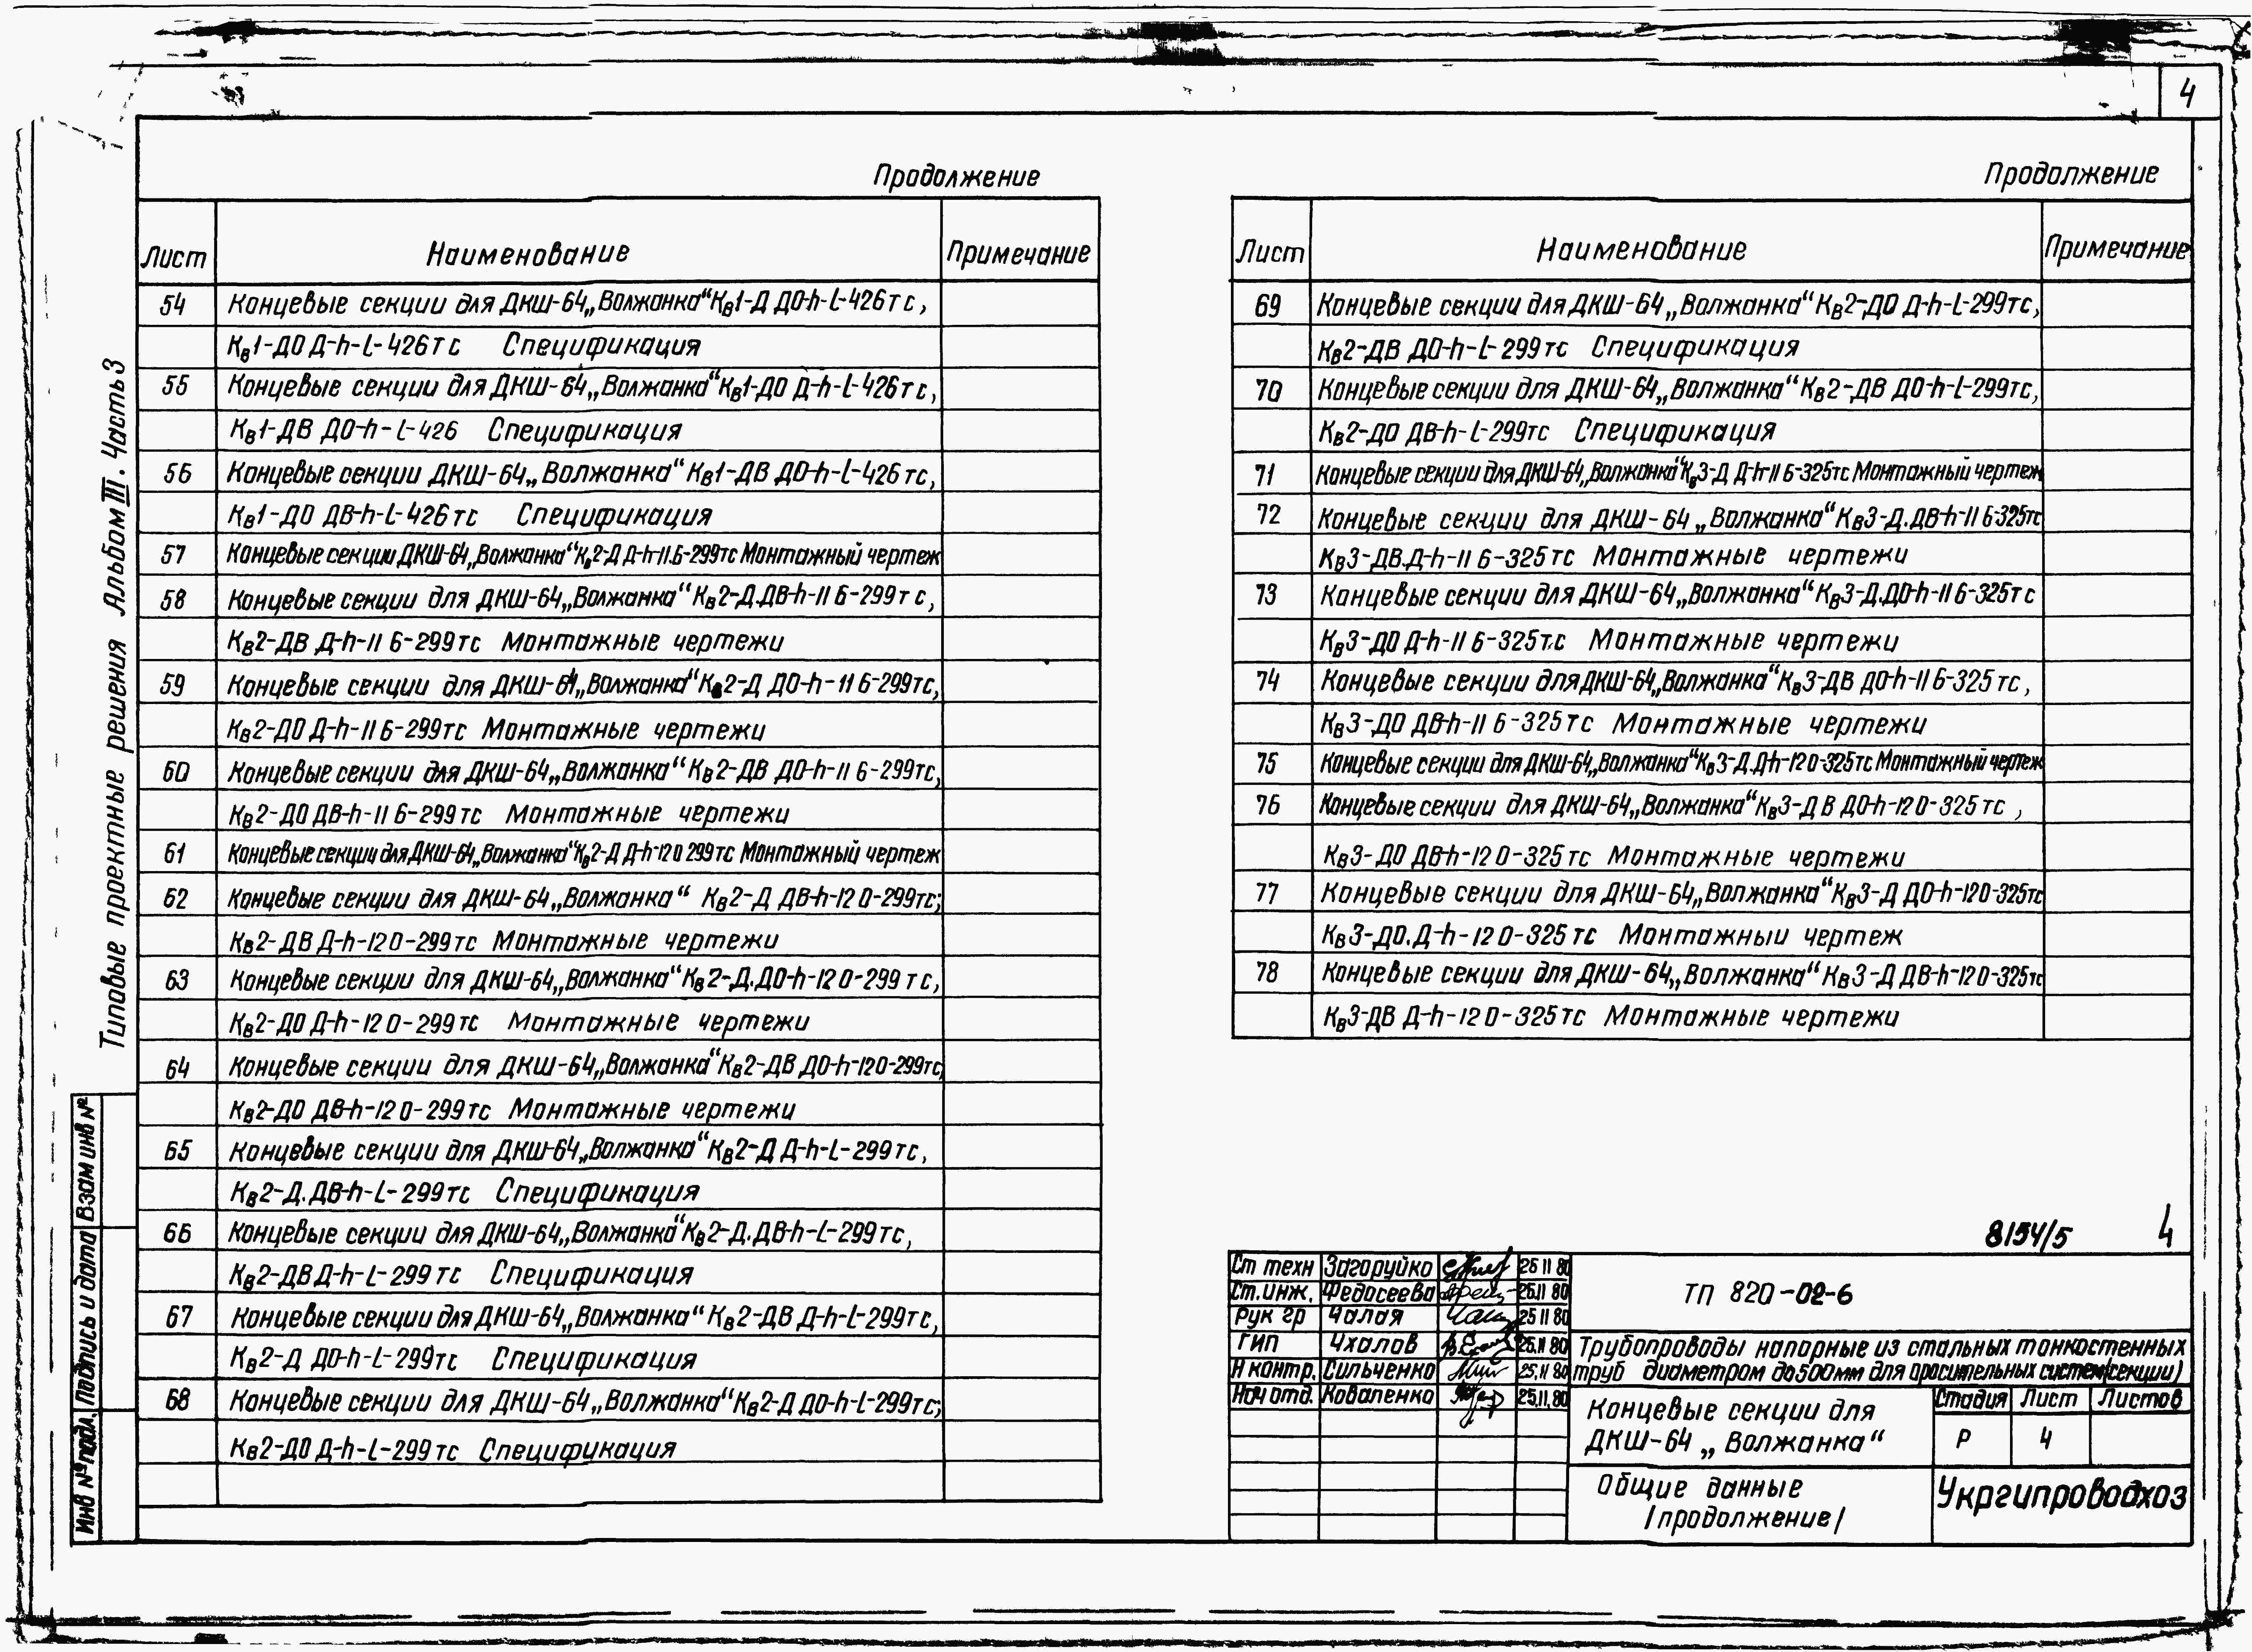 4
Типовые проектные решения Альбом III. Часть 3
Продолжение
Лист Наименование Примечание
54 Концевые секции для ДКШ-64 „Волжанка“ Кв1-Д ДО-h-l-426тс,
Кв1-ДО Д-h-l-426тс Спецификация
55 Концевые секции для ДКШ-64 „Волжанка“ Кв1-ДО Д-h-l-426тс,
Кв1-ДВ ДО-h-l-426 Спецификация
56 Концевые секции ДКШ-64 „Волжанка“ Кв1-ДВ ДО-h-l-426тс,
Кв1-ДО ДВ-h-l-426тс Спецификация
57 Концевые секции ДКШ-64 „Волжанка“ Кв2-Д Д-h-11.6-299тс Монтажный чертеж
58 Концевые секции для ДКШ-64 „Волжанка“ Кв2-Д.ДВ-h-11 6-299тс,
Кв2-ДВ Д-h-11 6-299тс Монтажные чертежи
59 Концевые секции для ДКШ-64 „Волжанка“ Кв2-Д ДО-h-11 6-299тс,
Кв2-ДО Д-h-11 6-299тс Монтажные чертежи
60 Концевые секции для ДКШ-64 „Волжанка“ Кв2-ДВ ДО-h-11 6-299тс,
Кв2-ДО ДВ-h-11 6-299тс Монтажные чертежи
61 Концевые секции для ДКШ-64 „Волжанка“ Кв2-Д Д-h-12 0 299тс Монтажный чертеж
62 Концевые секции для ДКШ-64 „Волжанка“ Кв2-Д ДВ-h-12 0-299тс;
Кв2-ДВ Д-h-12 0-299тс Монтажные чертежи
63 Концевые секции для ДКШ-64 „Волжанка“ Кв2-Д.ДО-h-12 0-299тс,
Кв2-ДО Д-h-12 0-299тс Монтажные чертежи
64 Концевые секции для ДКШ-64 „Волжанка“ Кв2-ДВ ДО-h-12 0-299тс,
Кв2-ДО ДВ-h-12 0-299тс Монтажные чертежи
65 Концевые секции для ДКШ-64 „Волжанка“ Кв2-Д Д-h-l-299тс,
Кв2-Д.ДВ-h-l-299тс Спецификация
66 Концевые секции для ДКШ-64 „Волжанка“ Кв2-Д.ДВ-h-l-299тс,
Кв2-ДВ Д-h-l-299тс Спецификация
67 Концевые секции для ДКШ-64 „Волжанка“ Кв2-ДВ Д-h-l-299тс,
Кв2-Д ДО-h-l-299тс Спецификация
68 Концевые секции для ДКШ-64 „Волжанка“ Кв2-Д ДО-h-l-299тс;
Кв2-ДО Д-h-l-299тс Спецификация
Продолжение
Лист Наименование Примечание
69 Концевые секции для ДКШ-64 „Волжанка“ Кв2-ДО Д-h-l-299тс,
Кв2-ДВ ДО-h-l-299тс Спецификация
70 Концевые секции для ДКШ-64 „Волжанка“ Кв2-ДВ ДО-h-l-299тс,
Кв2-ДО ДВ-h-l-299тс Спецификация
71 Концевые секции для ДКШ-64 „Волжанка“ Кв3-Д Д-h-11 6-325тс Монтажный чертеж
72 Концевые секции для ДКШ-64 „Волжанка“ Кв3-Д.ДВ-h-11 6-325тс
Кв3-ДВ.Д-h-11 6-325тс Монтажные чертежи
73 Концевые секции для ДКШ-64 „Волжанка“ Кв3-Д.ДО-h-11 6-325тс
Кв3-ДО Д-h-11 6-325т.с Монтажные чертежи
74 Концевые секции для ДКШ-64 „Волжанка“ Кв3-ДВ ДО-h-11 6-325тс,
Кв3-ДО ДВ-h-11 6-325тс Монтажные чертежи
75 Концевые секции для ДКШ-64 „Волжанка“ Кв3-Д.Д-h-12 0-325тс Монтажный чертеж
76 Концевые секции для ДКШ-64 „Волжанка“ Кв3-Д В ДО-h-12 0-325тс,
Кв3-ДО ДВ-h-12 0-325тс Монтажные чертежи
77 Концевые секции для ДКШ-64 „Волжанка“ Кв3-Д ДО-h-12 0-325тс
Кв3-ДО.Д-h-12 0-325тс Монтажныи чертеж
78 Концевые секции для ДКШ-64 „Волжанка“ Кв3-Д ДВ-h-12 0-325тс
Кв3-ДВ Д-h-12 0-325тс Монтажные чертежи
8154/5 4
Ст техн Загоруйко 25 11 80
Ст.инж. Федосеева 25.11 80
Рук гр Чалая 25 11 80
ГИП Чхалов 25.11 80
Н контр. Сильченко 25.11 80
Нач отд. Коваленко 25.11.80
ТП 820-02-6
Трубопроводы напорные из стальных тонкостенных
труб диаметром до 500мм для оросительных систем (секции)
Концевые секции для
ДКШ-64 „Волжанка“
Стадия Лист Листов
Р 4
Общие данные
/продолжение/
Укргипроводхоз
Инв № подл. Подпись и дата Взам инв №